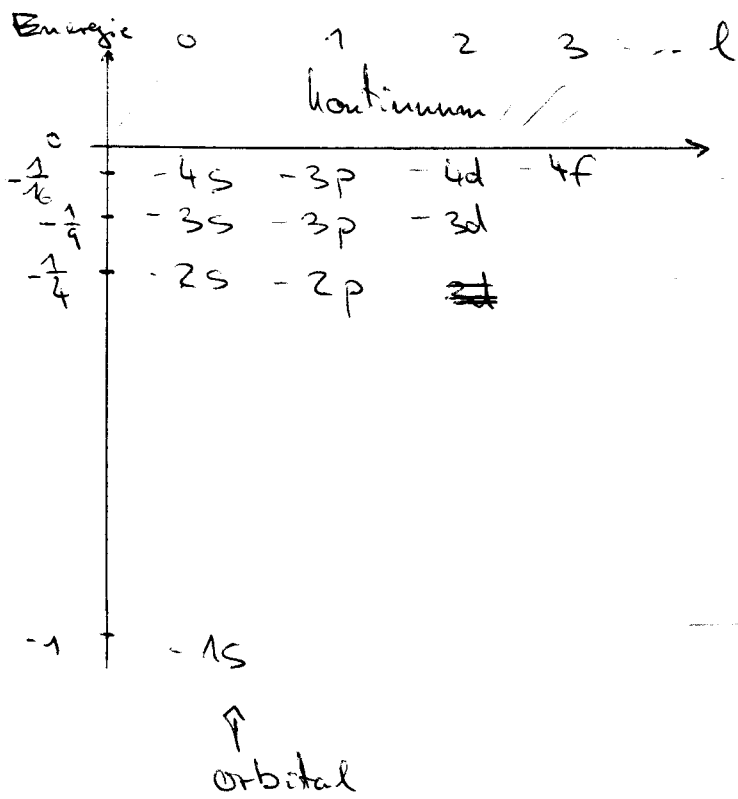 Energie 0 1 2 3 .... l
Kontinuum
0
-1/16 - 4s - 3p - 4d - 4f
-1/9 - 3s - 3p - 3d
-1/4 - 2s - 2p
-1 - 1s
orbital